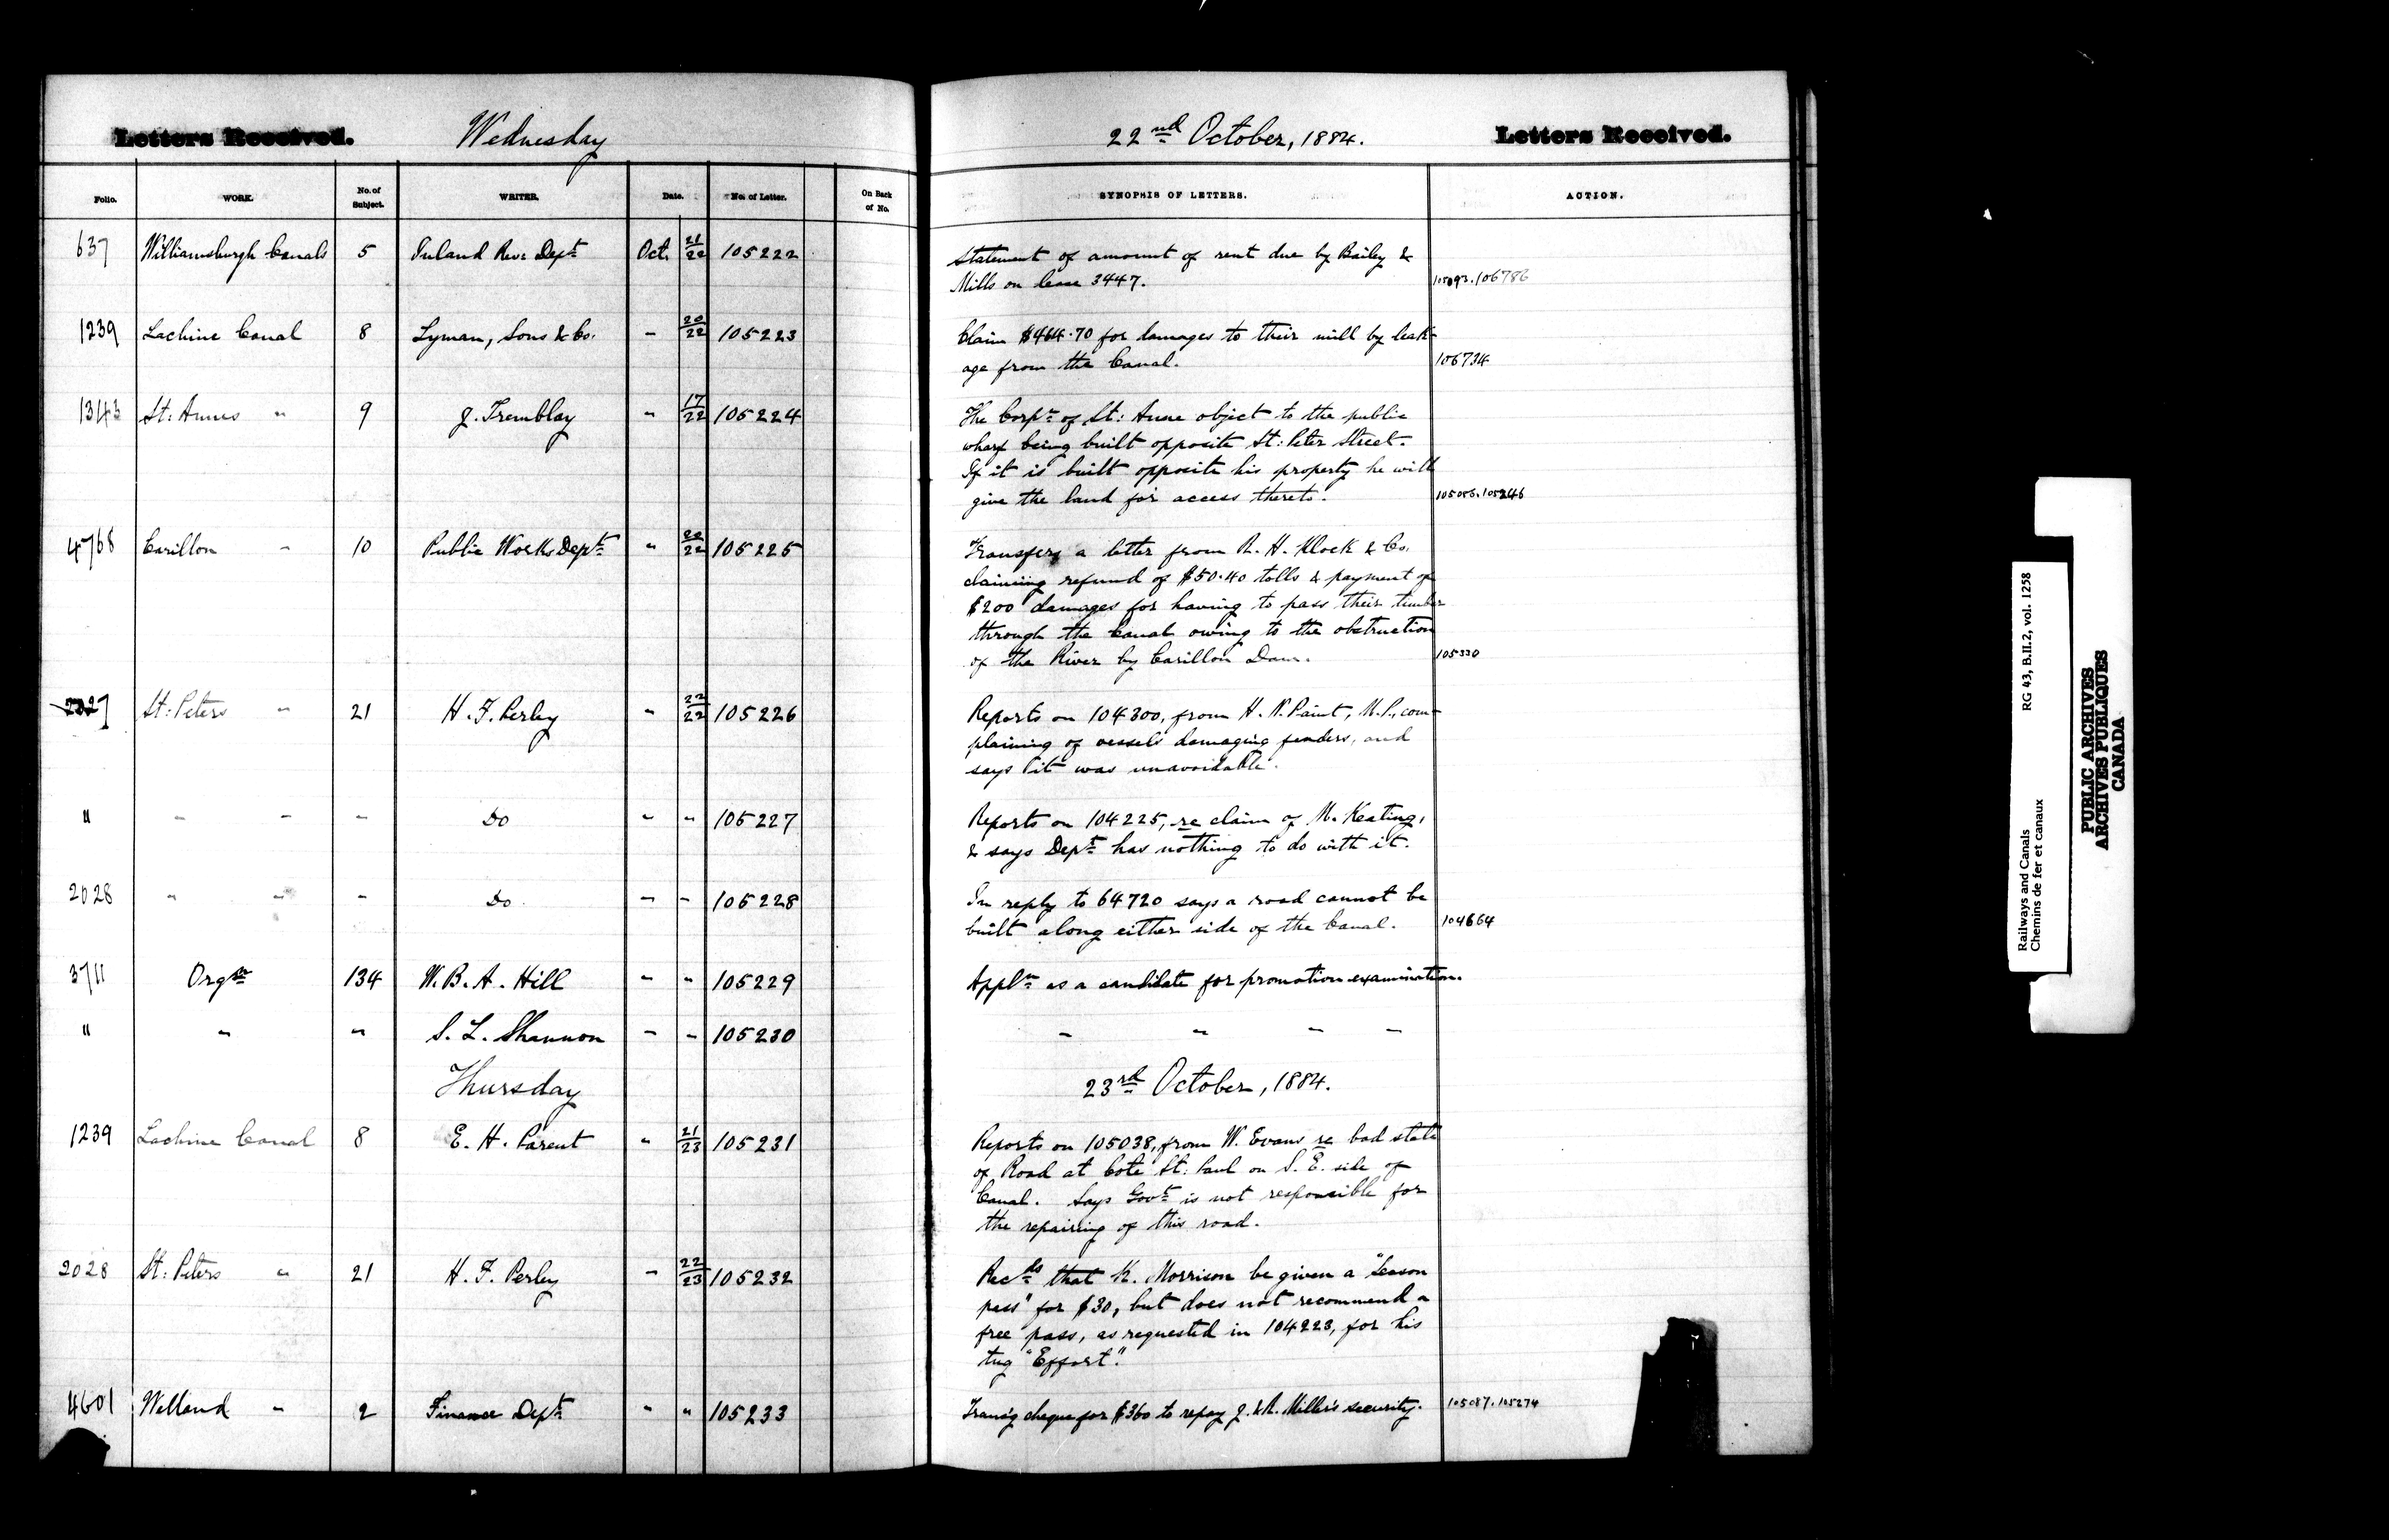 Letters Received. Wednesday 22nd October, 1884. Letters Received.
Folio. WORK. No. of Subject. WRITER. Date. No. of Letter. On Back of No. SYNOPSIS OF LETTERS. ACTION.
637 Williamsburgh Canals 5 Inland Rev: Dept Oct. 21/22 105222 Statement of amount of rent due by Bailey &
Mills on lease 3447. 105093. 106786
1239 Lachine Canal 8 Lyman, Sons & Co. " 20/22 105223 Claim $464.70 for damages to their mill by leak-
age from the Canal. 106734
1343 St: Annes " 9 J. Tremblay " 17/22 105224 The Corpn of St: Anne object to the public
wharf being built opposite St: Peter Street.
If it is built opposite his property he will
give the land for access thereto. 105056. 105246
4768 Carillon " 10 Public Works Dept " 20/22 105225 Transfers a letter from R. H. Klock & Co.
claiming refund of $50.40 tolls & payment of
$200 damages for having to pass their timber
through the Canal owing to the obstruction
of the River by Carillon Dam. 105330
2027 St: Peters " 21 H. F. Perley " 22/22 105226 Reports on 104300, from H. N. Paint, M.P., com-
plaining of vessels damaging fenders, and
says it was unavoidable.
" " " " Do " " 105227 Reports on 104225, re claim of M. Keating,
& says Dept has nothing to do with it.
2028 " " " Do " " 105228 In reply to 64720 says a road cannot be
built along either side of the Canal. 104664
3711 Orgn 134 W. B. A. Hill " " 105229 Appln as a candidate for promotion examination.
" " " S. L. Shannon " " 105230 " " " "
Thursday 23rd October, 1884.
1239 Lachine Canal 8 E. H. Parent " 21/23 105231 Reports on 105038, from W. Evans re bad state
of Road at Cote St: Paul on S. E. side of
Canal. Says Govt is not responsible for
the repairing of this road.
2028 St: Peters " 21 H. F. Perley " 22/23 105232 Recds that K. Morrison be given a "Season
pass" for $30, but does not recommend a
free pass, as requested in 104223, for his
tug "Effort".
4601 Welland " 2 Finance Dept " " 105233 Transg cheque for $360 to repay J. & R. Miller's security. 105087. 105274
Railways and Canals RG 43, B.II.2, vol. 1258
Chemins de fer et canaux
PUBLIC ARCHIVES
ARCHIVES PUBLIQUES
CANADA